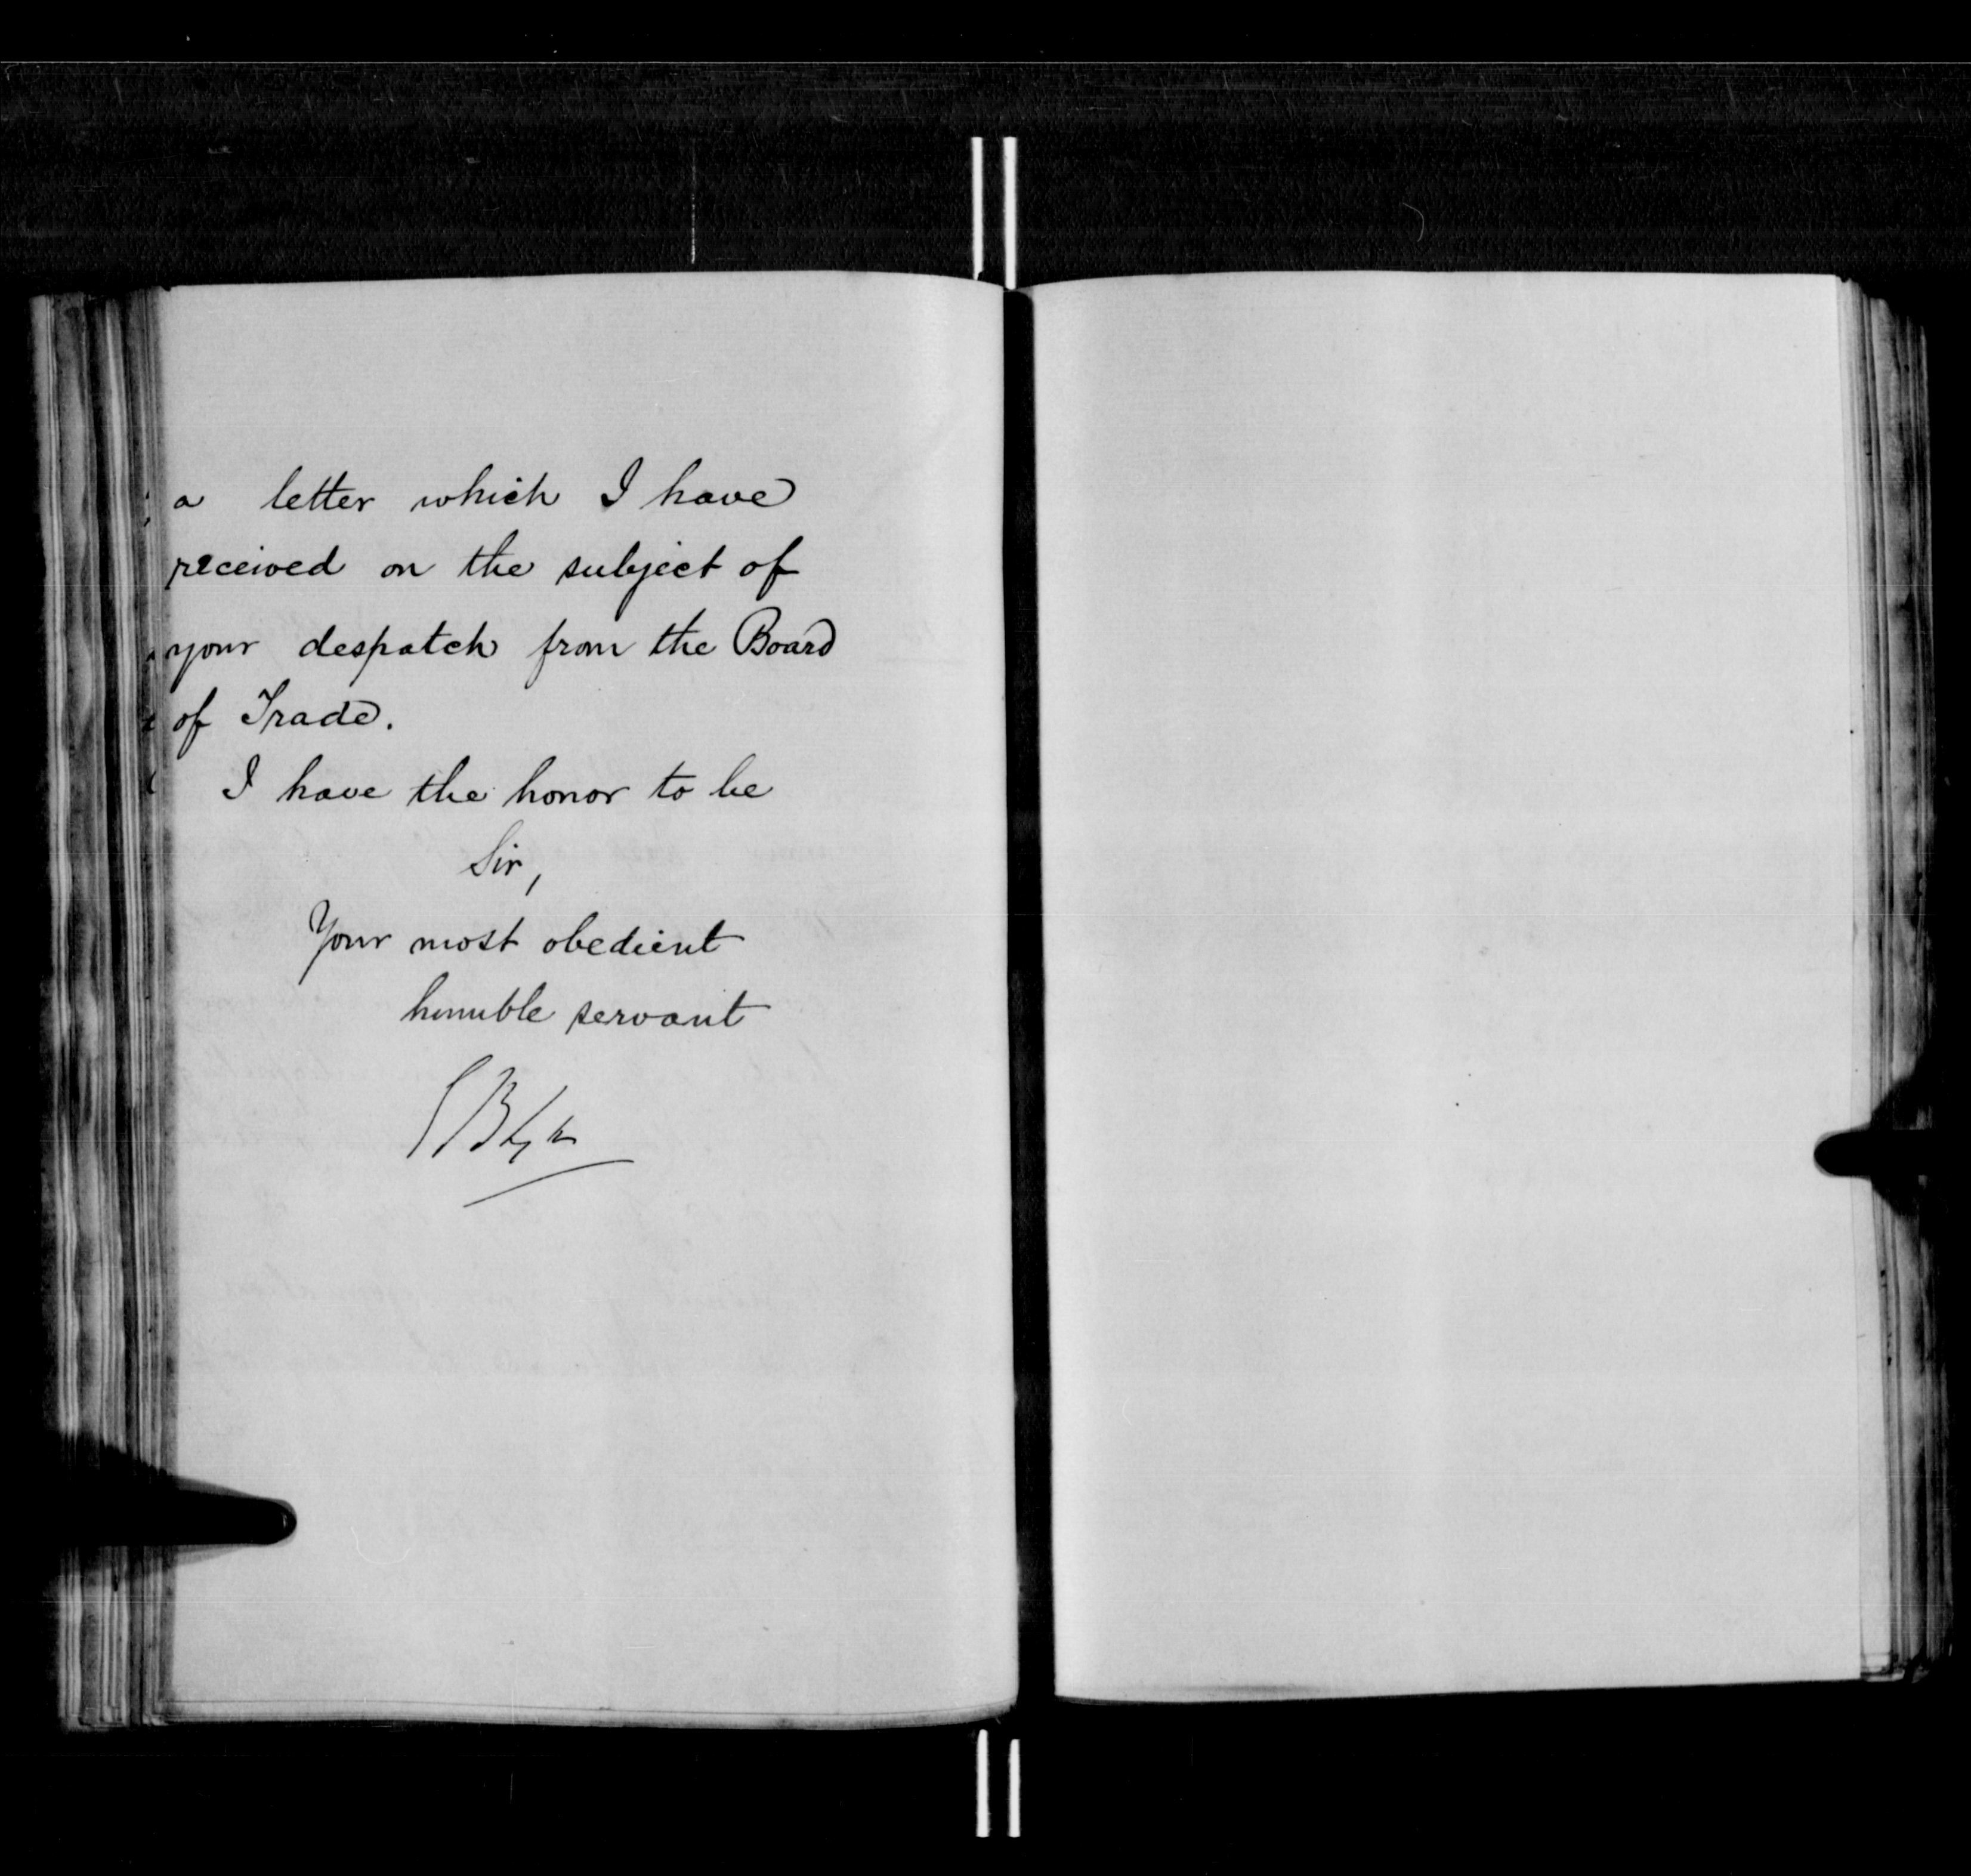 a letter which I have
received on the subject of
your despatch from the Board
of Trade.
I have the honor to be
Sir,
Your most obedient
humble servant